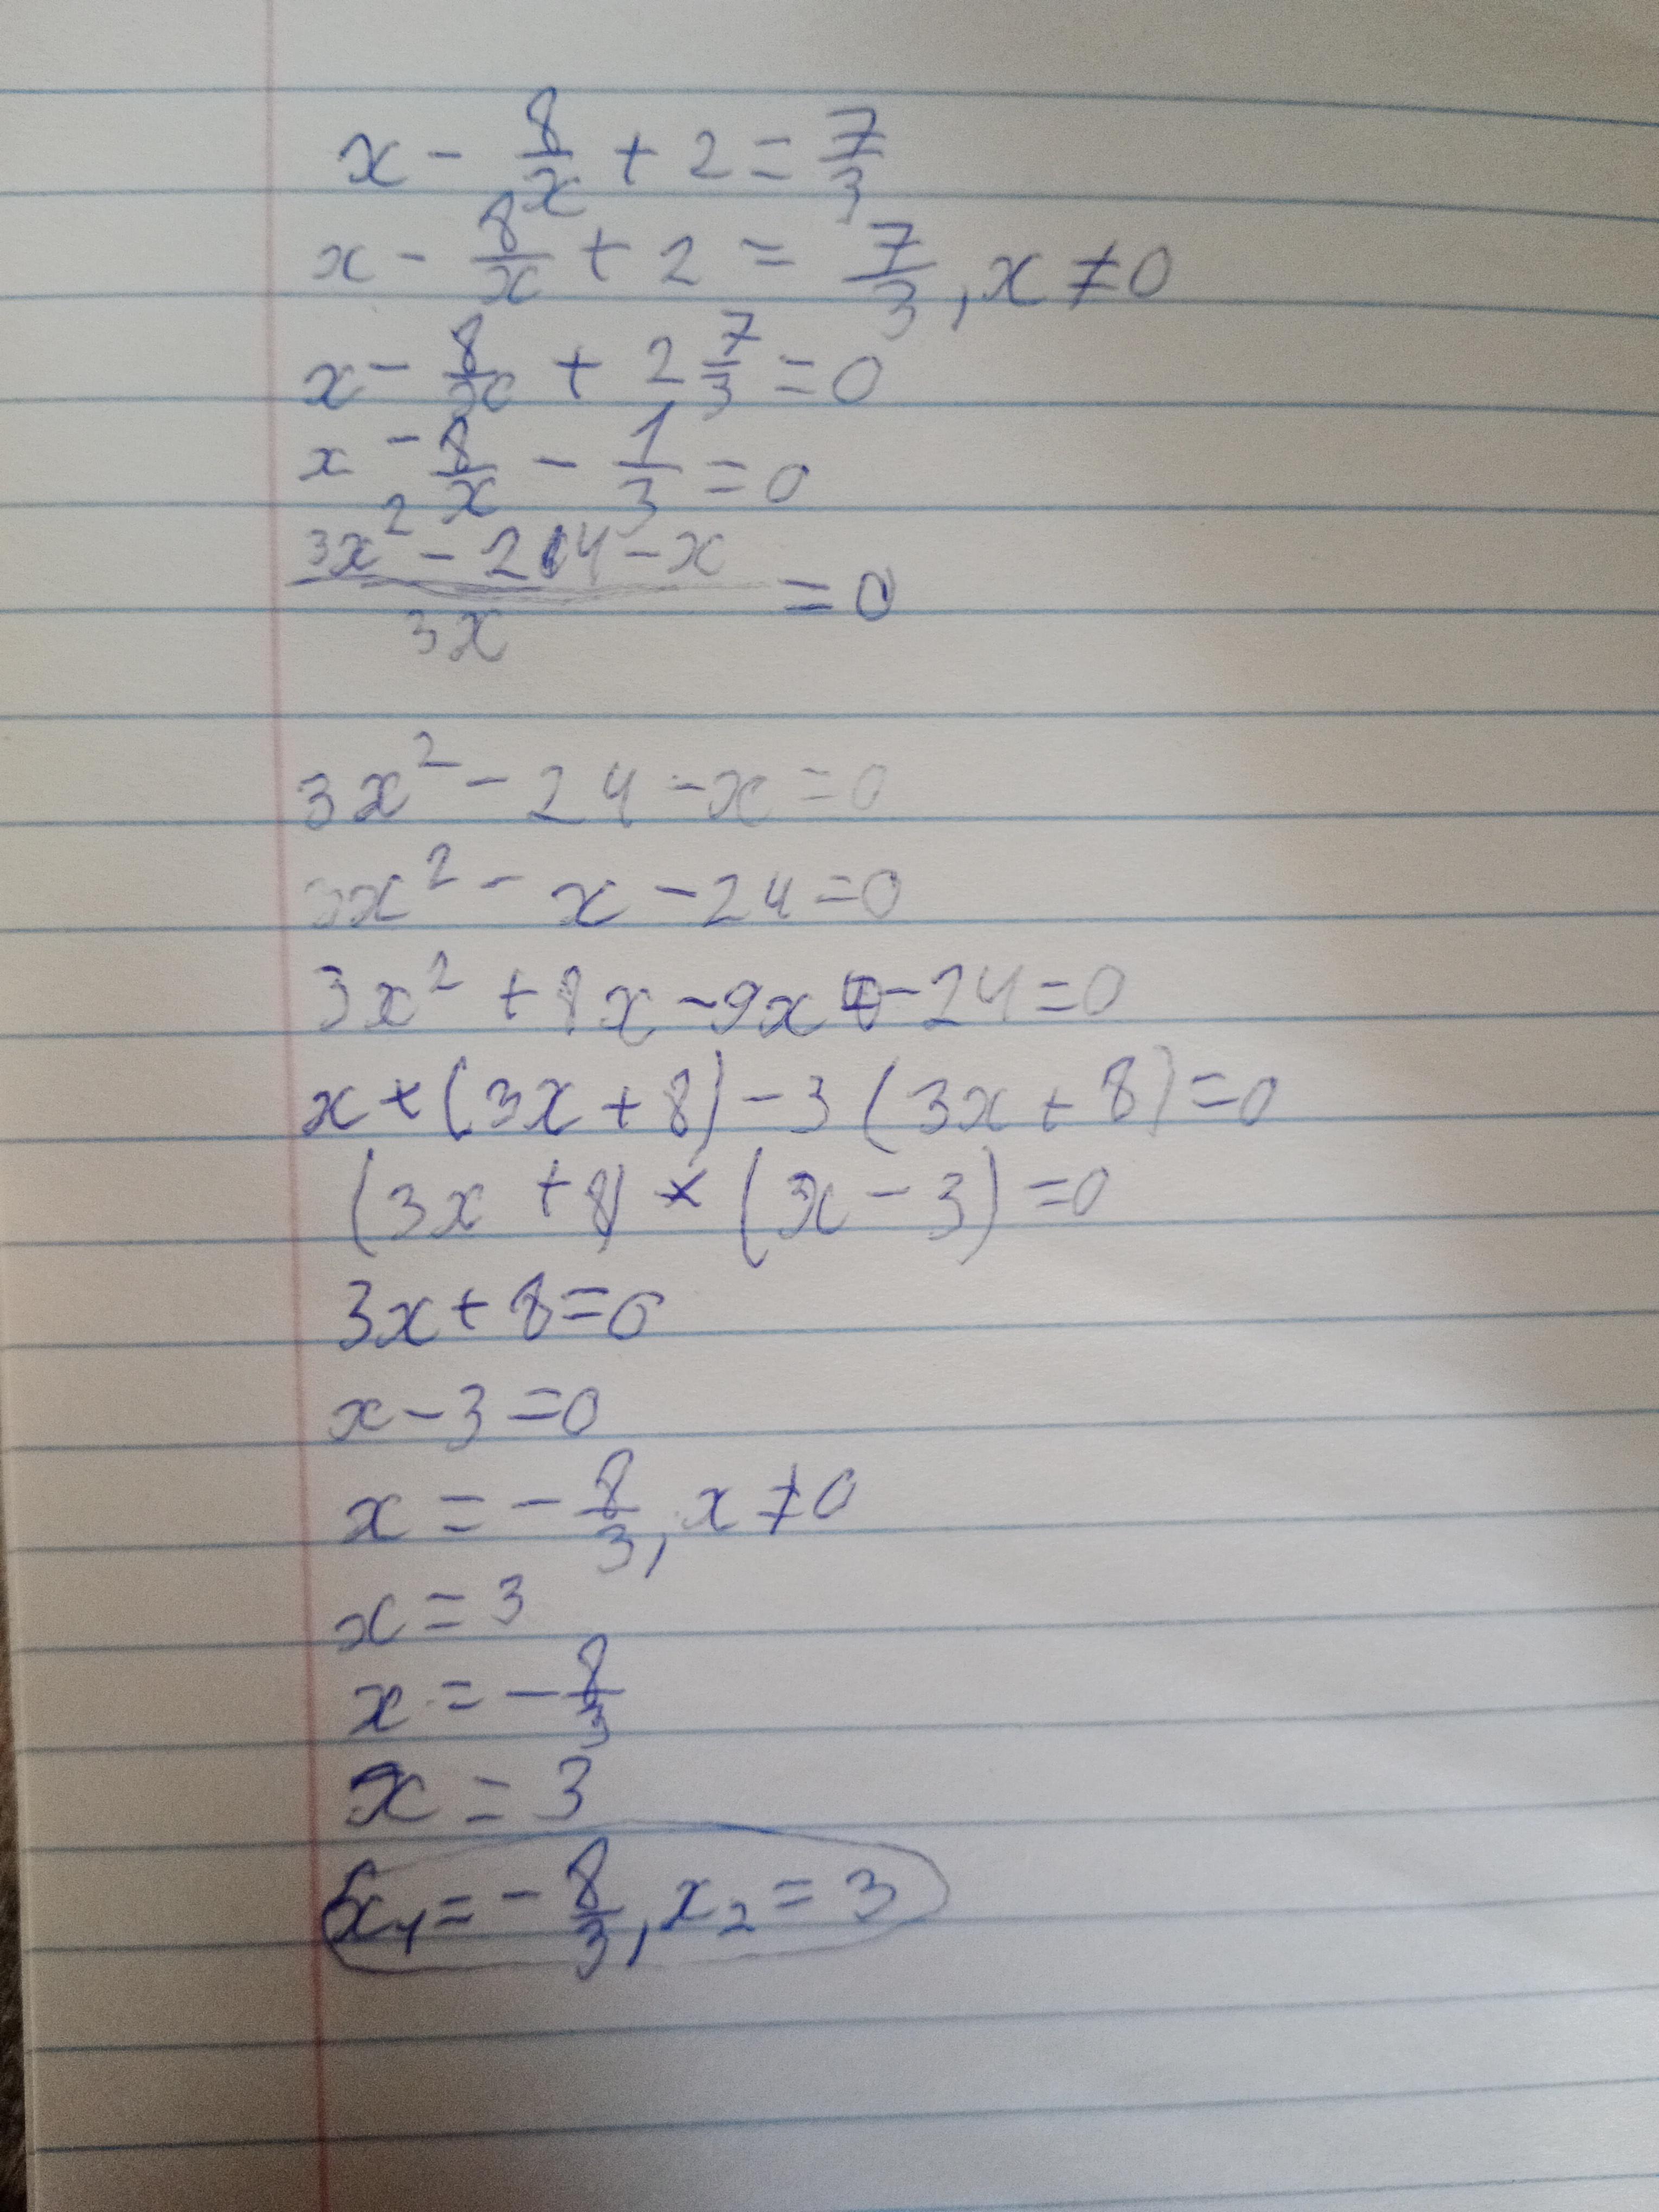 x - 8/x + 2 = 7/3
x - 8/x + 2 = 7/3, x ≠ 0
x - 8/x + 2 7/3 = 0
x - 8/x - 1/3 = 0
(3x² - 24 - x)/(3x) = 0
3x² - 24 - x = 0
3x² - x - 24 = 0
3x² + 8x - 9x - 24 = 0
x × (3x + 8) - 3 (3x + 8) = 0
(3x + 8) × (x - 3) = 0
3x + 8 = 0
x - 3 = 0
x = - 8/3, x ≠ 0
x = 3
x = - 8/3
x = 3
x₁ = - 8/3, x₂ = 3